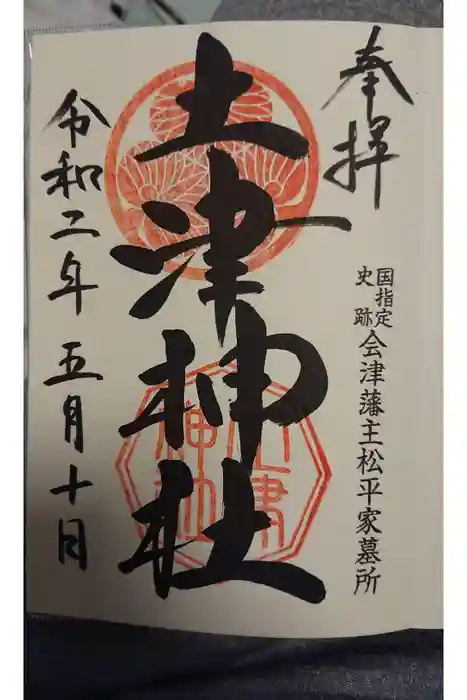 奉拝
国指定
史跡
会津藩主松平家墓所
土津神社
令和二年五月十日
土津
神社